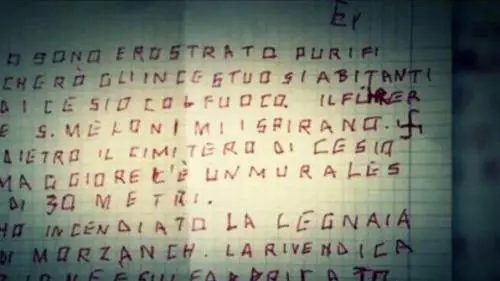 Er
O SONO EROSTRATO PURIFI
CHERÒ GLI INCESTUOSI ABITANTI
DI CESIO COL FUOCO. IL FÜRER
E S. MELONI MI ISPIRANO. 卐
DIETRO IL CIMITERO DI CESIO
MAGGIORE C'È UN MURALES
DI 30 METRI.
HO INCENDIATO LA LEGNAIA
DI MORZANCH. LA RIVENDICA